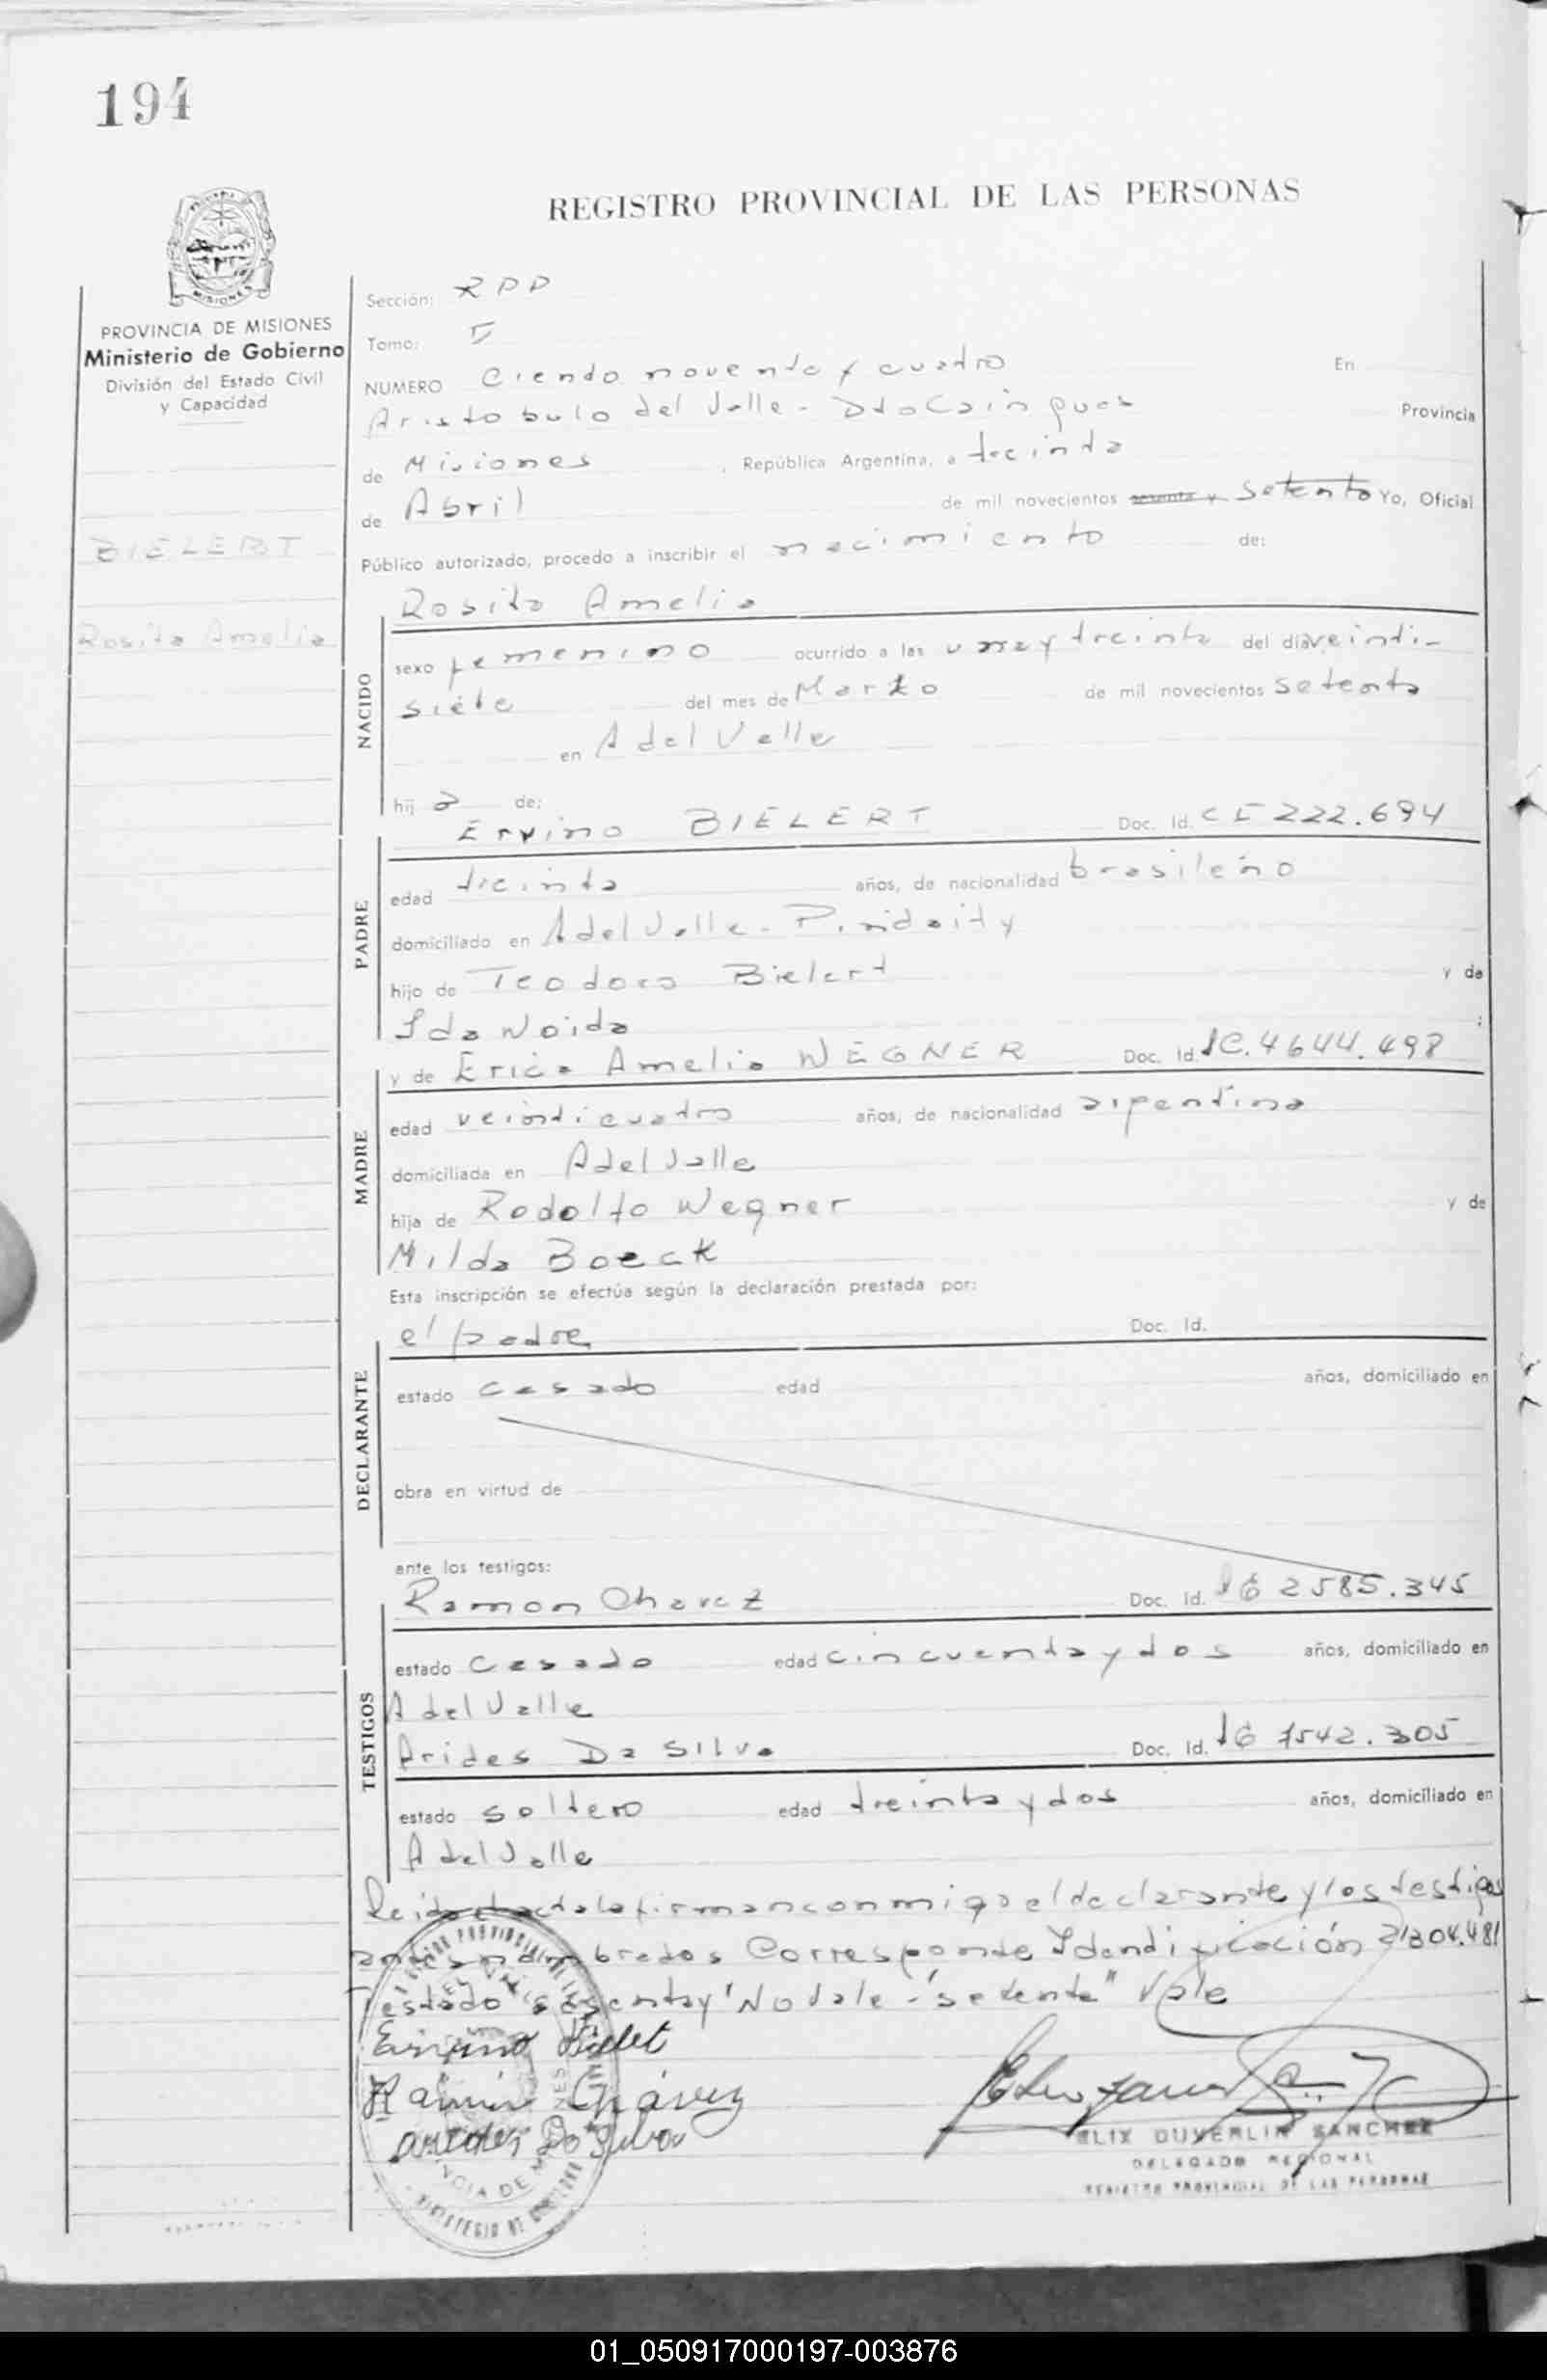 194
REGISTRO PROVINCIAL DE LAS PERSONAS
MISIONES
PROVINCIA DE MISIONES
Ministerio de Gobierno
División del Estado Civil
y Capacidad
BIELERT
Rosita Amelia
Sección: RPP
Tomo:
NUMERO Ciento noventa y cuatro En
Aristobulo del Valle - Dto Cainguas Provincia
de Misiones , República Argentina, a treinta
de Abril de mil novecientos sesenta y setenta Yo, Oficial
Público autorizado, procedo a inscribir el nacimiento de:
Rosita Amelia
NACIDO
sexo femenino ocurrido a las una y treinta del día veinti-
siete del mes de Marzo de mil novecientos setenta
en A del Valle
hij a de:
Ervino BIELERT Doc. Id. CI 222.694
PADRE
edad treinta años, de nacionalidad brasileño
domiciliado en A del Valle - Pindaity
hijo de Teodoro Bielert y de
Ida Noida :
y de Erica Amelia WEGNER Doc. Id. LC. 4644.498
MADRE
edad veinticuatro años, de nacionalidad argentina
domiciliada en A del Valle
hija de Rodolfo Wegner y de
Milda Boeck
Esta inscripción se efectúa según la declaración prestada por:
el padre Doc. Id.
DECLARANTE
estado casado edad años, domiciliado en
obra en virtud de
ante los testigos:
Ramon Chavez Doc. Id. 2585.345
TESTIGOS
estado casado edad cincuenta y dos años, domiciliado en
A del Valle
Arides Da Silva Doc. Id. 7542.305
estado soltero edad treinta y dos años, domiciliado en
A del Valle
Leida el acta la firman conmigo el declarante y los testigos
antes nombrados Corresponde Identificación 21304.481
Testado "sesenta y" No vale - "setenta" Vale
Ervino Bielert
Ramón Chávez
Arides Da Silva
ELIX DUVERLIN SANCHEZ
DELEGADO REGIONAL
REGISTRO PROVINCIAL DE LAS PERSONAS
01_050917000197-003876